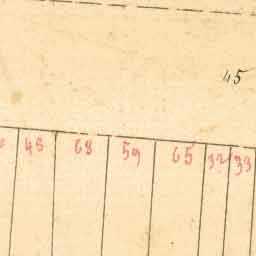 45
48 68 59 65 32 33